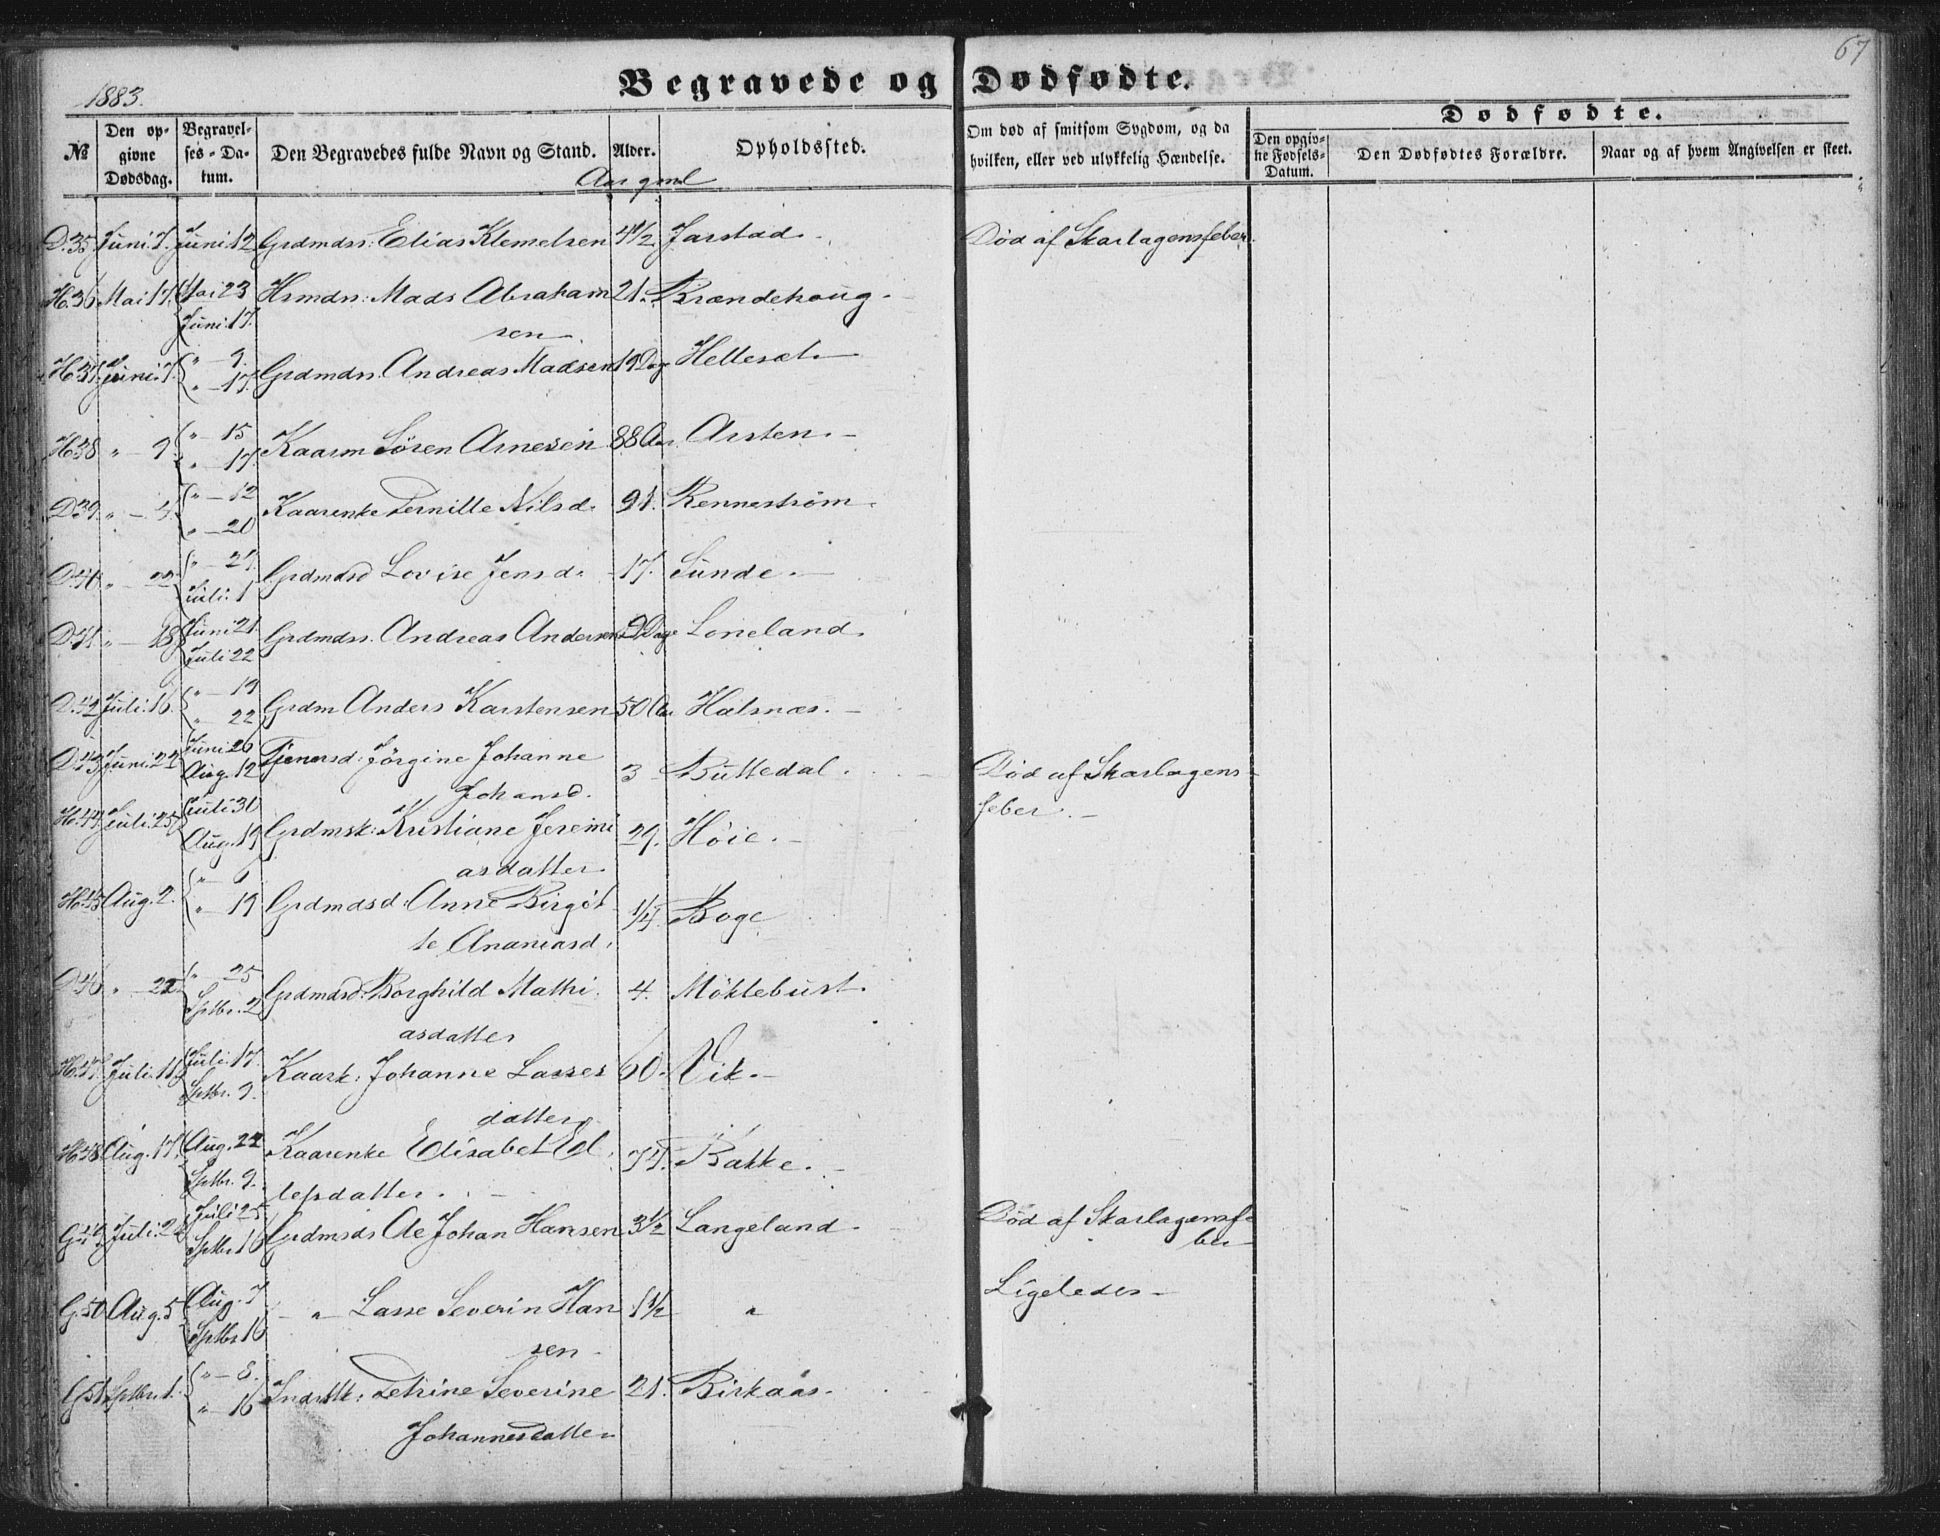 67
1883.
Begravede og Dødfødte.
№
Den opgivne Dødsdag.
Begravelses-Datum.
Den Begravedes fulde Navn og Stand.
Alder.
Opholdssted.
Om død af smitsom Sygdom, og da hvilken, eller ved ulykkelig Hændelse.
Dødfødte.
Den opgivne Fødsels-Datum.
Den Dødfødtes Forældre.
Naar og af hvem Angivelsen er skeet.
Aar gml
D.35 Juni 7. Juni 12 Grdmdss: Elias Klemetsen 4 1/2 Jarstad. Død af Skarlagensfeber.
H.36 Mai 17. Mai 23 Hsmdn: Mads Abraham 21. Brændehoug
Juni 17. sen
H.37. Juni 7. " 9. Grdmdn. Andreas Madsen 19 Dag Hellesæt
" 17.
H.38 " 9 " 15 Kaarm Søren Arnesen 88 Aar Aarsten.
" 17.
D.39. " 4. " 12 Kaarenke Pernille Nilsd. 91. Rennestrøm.
" 20
D.40. " 22. " 27. Grdmdsd Lovise Jensd. 17. Sunde.
Juli 1
D.41. " 18 Juni 21 Grdmdss. Andreas Andersen Dage Loneland.
Juli 22
D.42. Juli 16. " 19 Grdm Anders Karstensen 50 Aar Halsnæs.
" 22
D.43 Juni 22 Juni 26 Tjenersd: Jörgine Johanne 3 Buttedal. Død af Skarlagens
Aug. 12 Johansd. feber.
H.44. Juli 25 Juli 30 Grdmsk: Kristiane Jeremi 29. Höie.
Aug. 19 asdatter
H.45 Aug. 2. " Grdmdsd. Anne Birgit 1/4. Boge
" 19 te Ananiasd.
D.46 " 22 " 25 Grdmdsd: Borghild Mathi 4. Möklebust.
Sptbr. 2 asdatter
H.47. Juli 11. Juli 17 Kaark: Johanne Lasses 60. Vik.
Sptbr. 9. datter
H.48 Aug. 17. Aug. 22 Kaarenke Elisabet El 74. Bakke.
Sptbr. 9. lefsdatter.
G.49. Juli 2 Juli 25 Grdmsds Ole Johan Hansen 3 1/2 Langeland. Død af Skarlagensfe
Sptbr 16 ber
G.50 Aug. 5 Aug. 7 " Lasse Severin Han 1 1/2 " Ligeledes
Sptbr 16 sen
G.51 Sptbr. 1. " 8. Indstk: Petrine Severine 21. Birkaas.
" 16 Johannesdatter